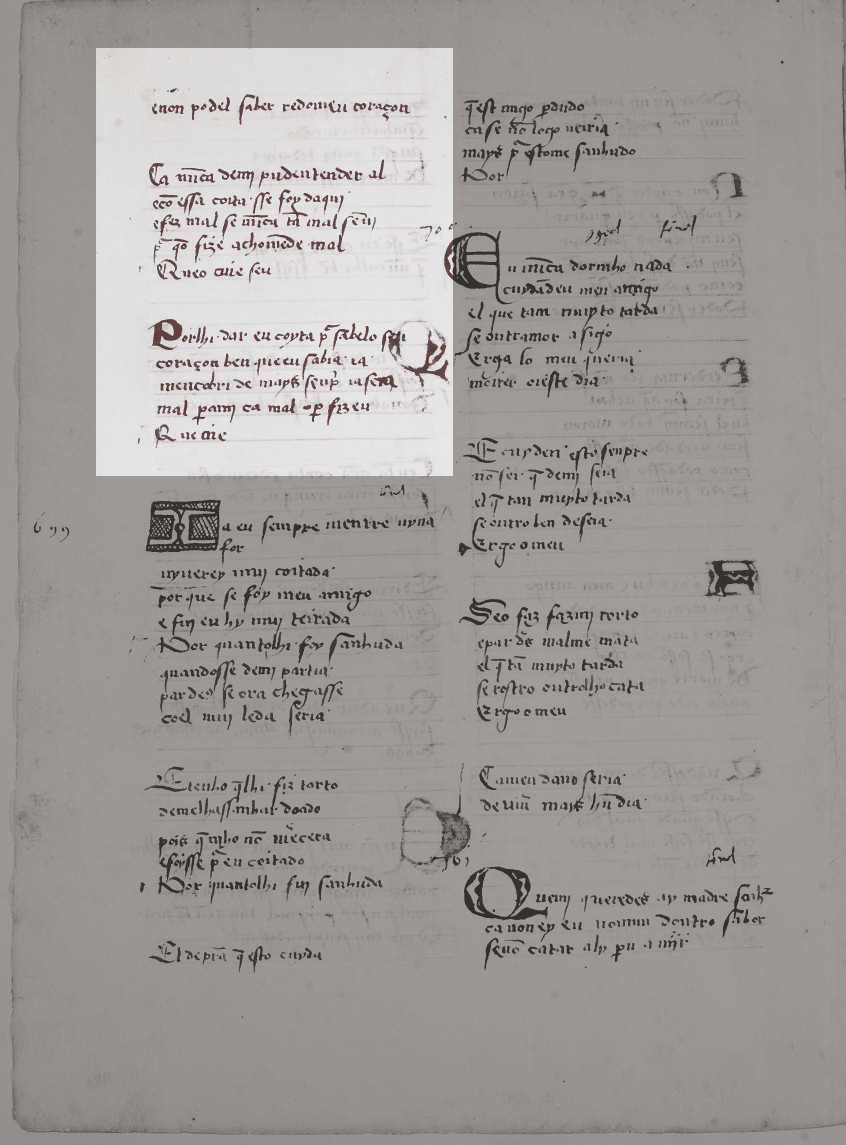 enon podel saber redomeu coraçon
Ca nũca demj pudentender al
ecõ essa coita sse foy daqui
e fez mal se nũca tã mal senj
p̃ qõ fize achomẽde mal
Queo cuie seu
Porlhi dar eu coyta p̃ sabelo seu
coraçon ben queeu sabia ia
mencobri de mays senp̃ iasera
mal pami ca mal o fizeu
Que cuie
699
final
Ia eu sempre mentre uyua
for
uyuerey mui coitada
por que se foy meu amigo
e fui eu hy mui errada
Por quantolhi foy sanhuda
quandosse demj partia
par des se ora chegasse
coel mui leda seria
E tenho q̃lhi fiz torto
demelhassanhar doado
pois q̃mho nõ mereceu
e foysse p̃ en coitado
Por quantolhi fuy sanhuda
El de prã q̃ esto cuyda
q̃ est migo perdudo
ca se nõ logo ueiria
mays p̃ estome sanhudo
Por
700
final
Eu nũca dormho nada
cuydãdeu meu amigo
el que tam muyto tarda
se outramor a sigo
Ergo lo meu q̃ria
morrer oieste dia
E cuyden esto senpre
nõ sei q̃ demj seia
el q̃ tan muyto tarda
se outro ben deseia
Ergo o meu
Seo faz fazmj torto
e par ds malme mata
el q̃ tã muyto tarda
se rostro outrolho cata
Ergo o meu
Ca meu dano seria
de uiuer mays hũ dia
701
final
Quem queredes ay madre
ca non ey eu nomun dontro sabor
senõ catar aly per u a uijr